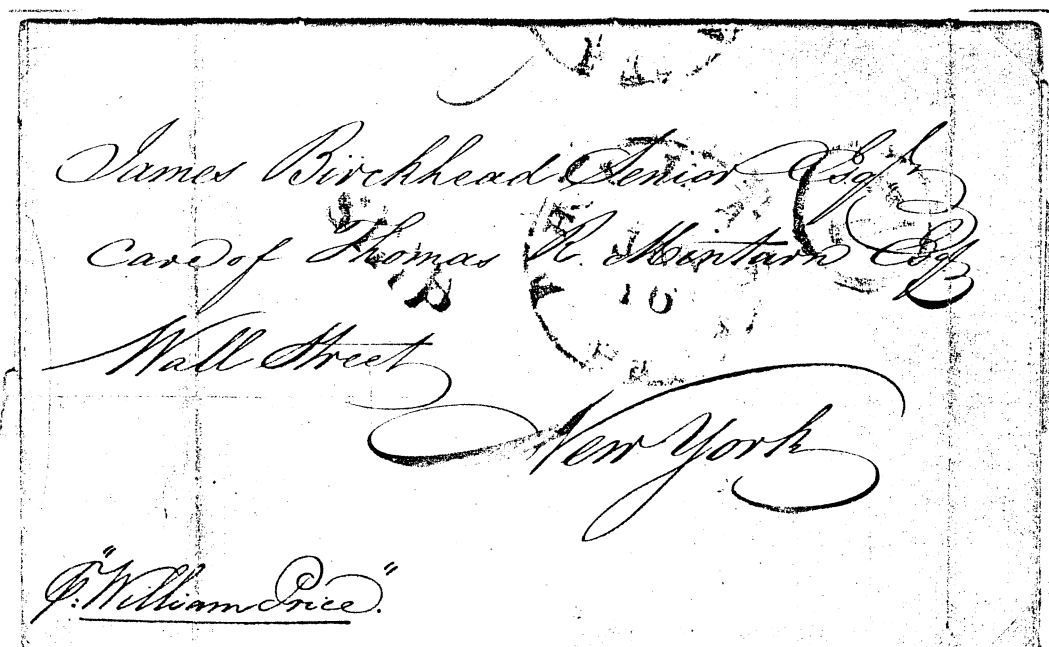 James Birckhead Senior Esqr
Care of Thomas R. Mintarn Esqr
Wall Street
New York
p: "William Price".